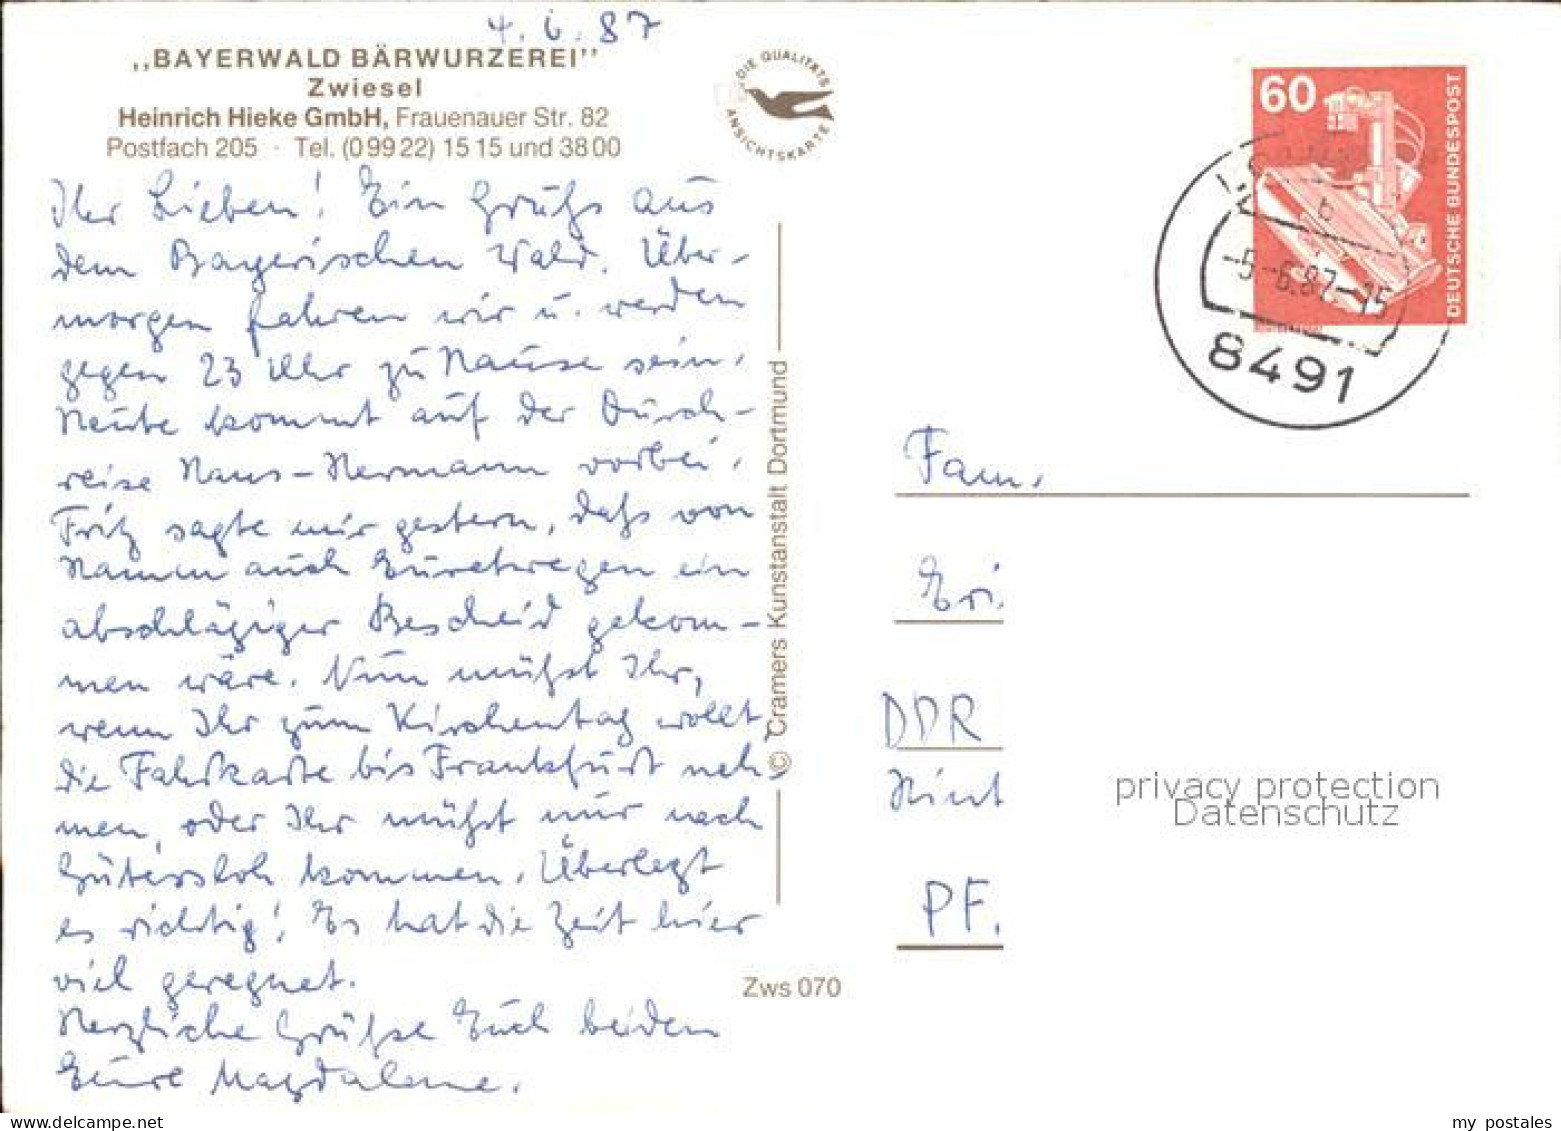 4.6.87
„BAYERWALD BÄRWURZEREI"
Zwiesel
Heinrich Hieke GmbH, Frauenauer Str. 82
Postfach 205 · Tel. (0 99 22) 15 15 und 38 00
DIE QUALITÄTS
ANSICHTSKARTE
60
DEUTSCHE BUNDESPOST
b
-5.-6.87.-15
8491
Ihr Lieben! Ein Gruß aus
dem Bayerischen Wald. Über-
morgen fahren wir u. werden
gegen 23 Uhr zu Hause sein.
Heute kommt auf der Durch-
reise Hans-Hermann vorbei.
Fritz sagte mir gestern, daß von
Hamm auch Euretwegen ein
abschlägiger Bescheid gekom-
men wäre. Nun müßt Ihr,
wenn Ihr zum Kirchentag wollt
die Fahrkarte bis Frankfurt neh
men, oder Ihr müßt nur nach
Gütersloh kommen. Überlegt
es richtig! Es hat die Zeit hier
viel geregnet.
Herzliche Grüße Euch beiden
Eure Magdalene.
© Cramers Kunstanstalt Dortmund
Zws 070
Fam.
Eri.
DDR
PF.
privacy protection
Datenschutz
www.delcampe.net
my_postales